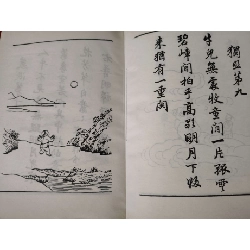 獨照第九
牛兒無處牧童閒一片孤雲
碧嶂間拍手高歌明月下歸
來猶有一重關